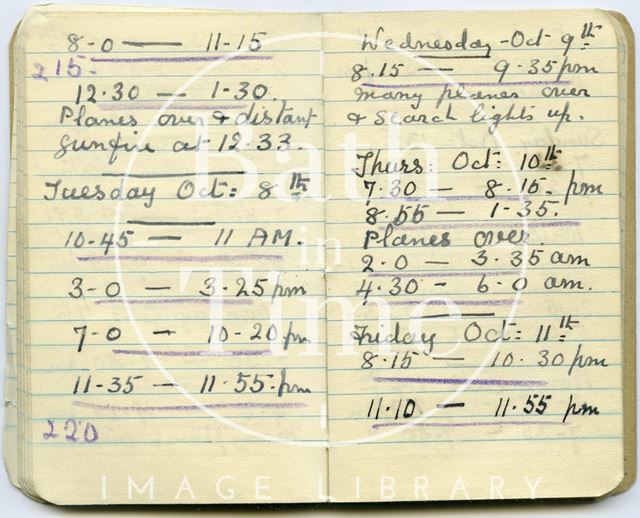 8-0 — 11-15
215.
12.30 — 1-30.
Planes over & distant
gunfire at 12.33.
Tuesday Oct: 8th
10-45 — 11 AM.
3-0 — 3.25 pm
7-0 — 10-20 pm
11-35 — 11.55. pm
220
Wednesday - Oct 9th
8.15 — 9.35 pm
Many planes over
& search lights up.
Thurs: Oct: 10th
7.30 — 8.15. pm
8.55 — 1-35.
Planes over.
2.0 — 3.35 am
4.30 - 6-0 am.
Friday Oct: 11th
8.15 — 10.30 pm
11.10 — 11.55 pm
Bath
in
Time
IMAGE LIBRARY